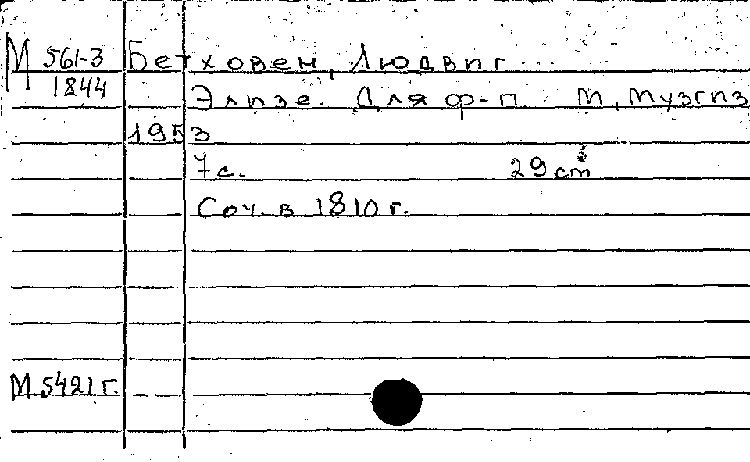 М 561-3 Бетховен, Людвиг...
1844
Элизе. Для ф-п. М, Музгиз
1953
7 с. 29 cm
Соч. в 1810 г.
М. 5421 г.